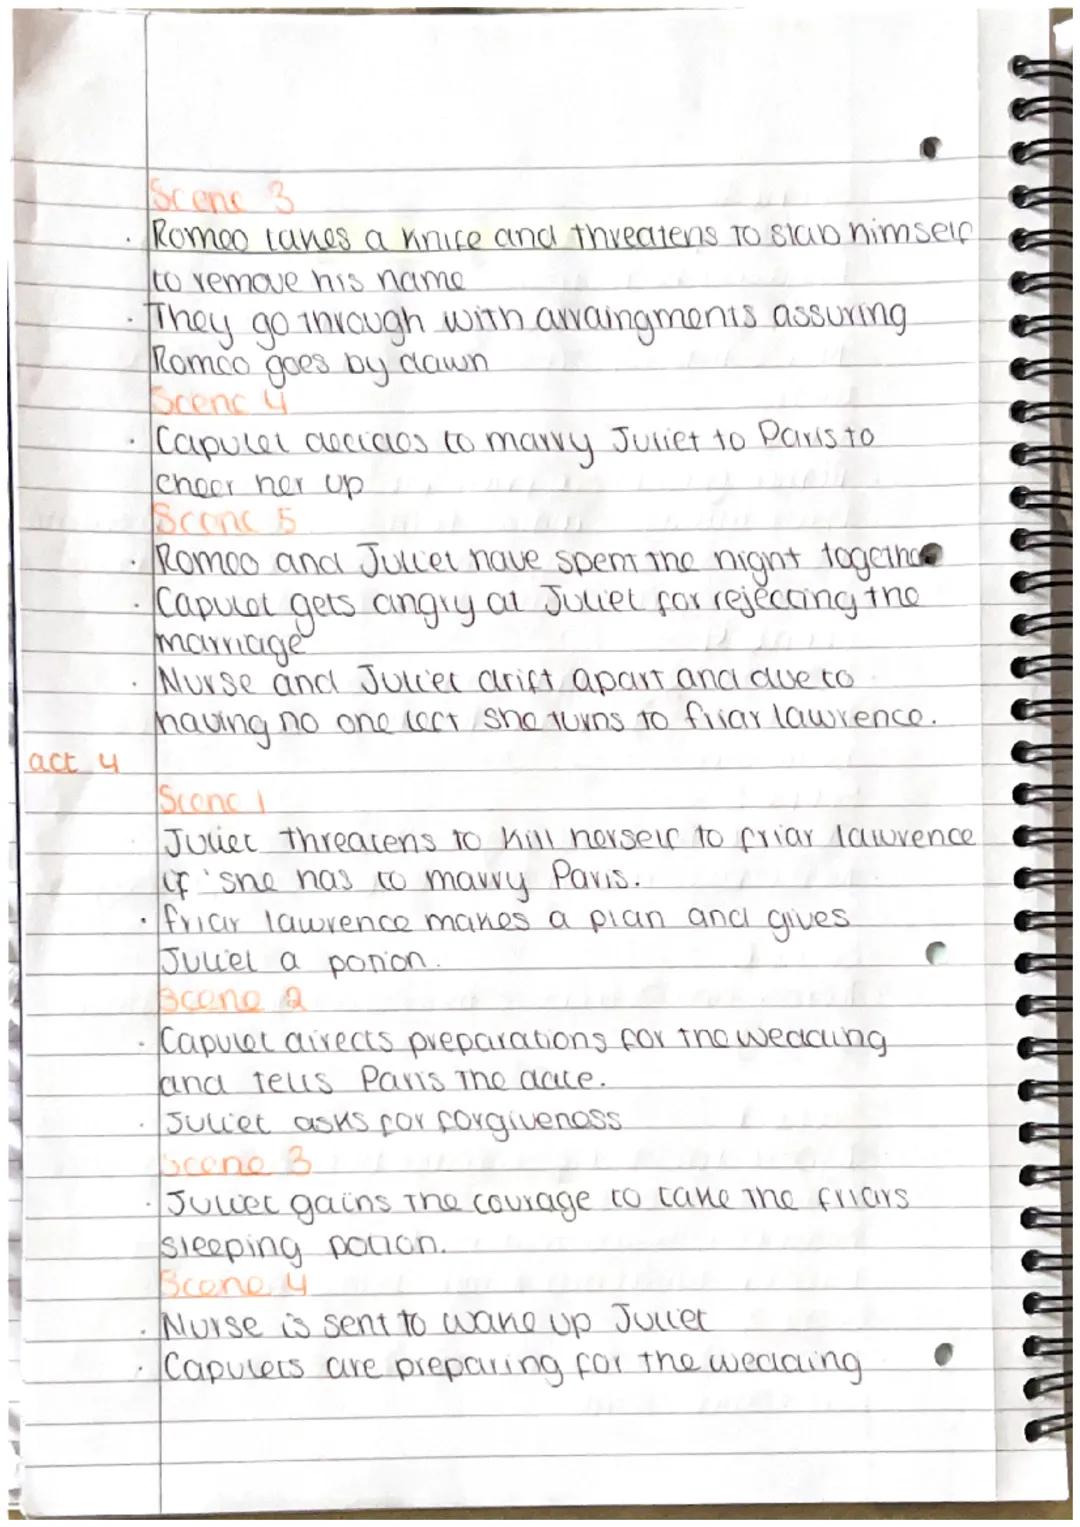 Scene 3
· Romeo takes a knife and threatens to stab himself
to remove his name
· They go through with arraingments assuring
Romeo goes by dawn
Scene 4
· Capulet decides to marry Juliet to Paris to
cheer her up
Scene 5
· Romeo and Juliet have spent the night together
· Capulet gets angry at Juliet for rejecting the
marriage
· Nurse and Juliet drift apart and due to
having no one left she turns to friar lawrence.
act 4
Scene 1
· Juliet threatens to kill herself to friar lawrence
if she has to marry Paris.
· friar lawrence makes a plan and gives
Juliet a potion.
Scene 2
· Capulet directs preparations for the wedding
and tells Paris the date.
· Juliet asks for forgiveness
Scene 3
· Juliet gains the courage to take the friars
sleeping potion.
Scene 4
· Nurse is sent to wake up Juliet
· Capulets are preparing for the wedding